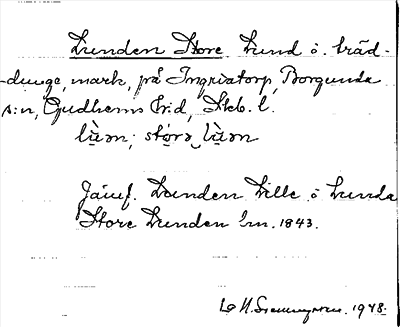 Lunden Store Lund ö. träd-
-dunge, mark, på Ingriatorp, Borgunda
s:n, Gudhems hrd, Skb. l.
lùn; stora lùn
Jämf. Lunden Lille o Lunda
Store Lunden lm. 1843.
1948.